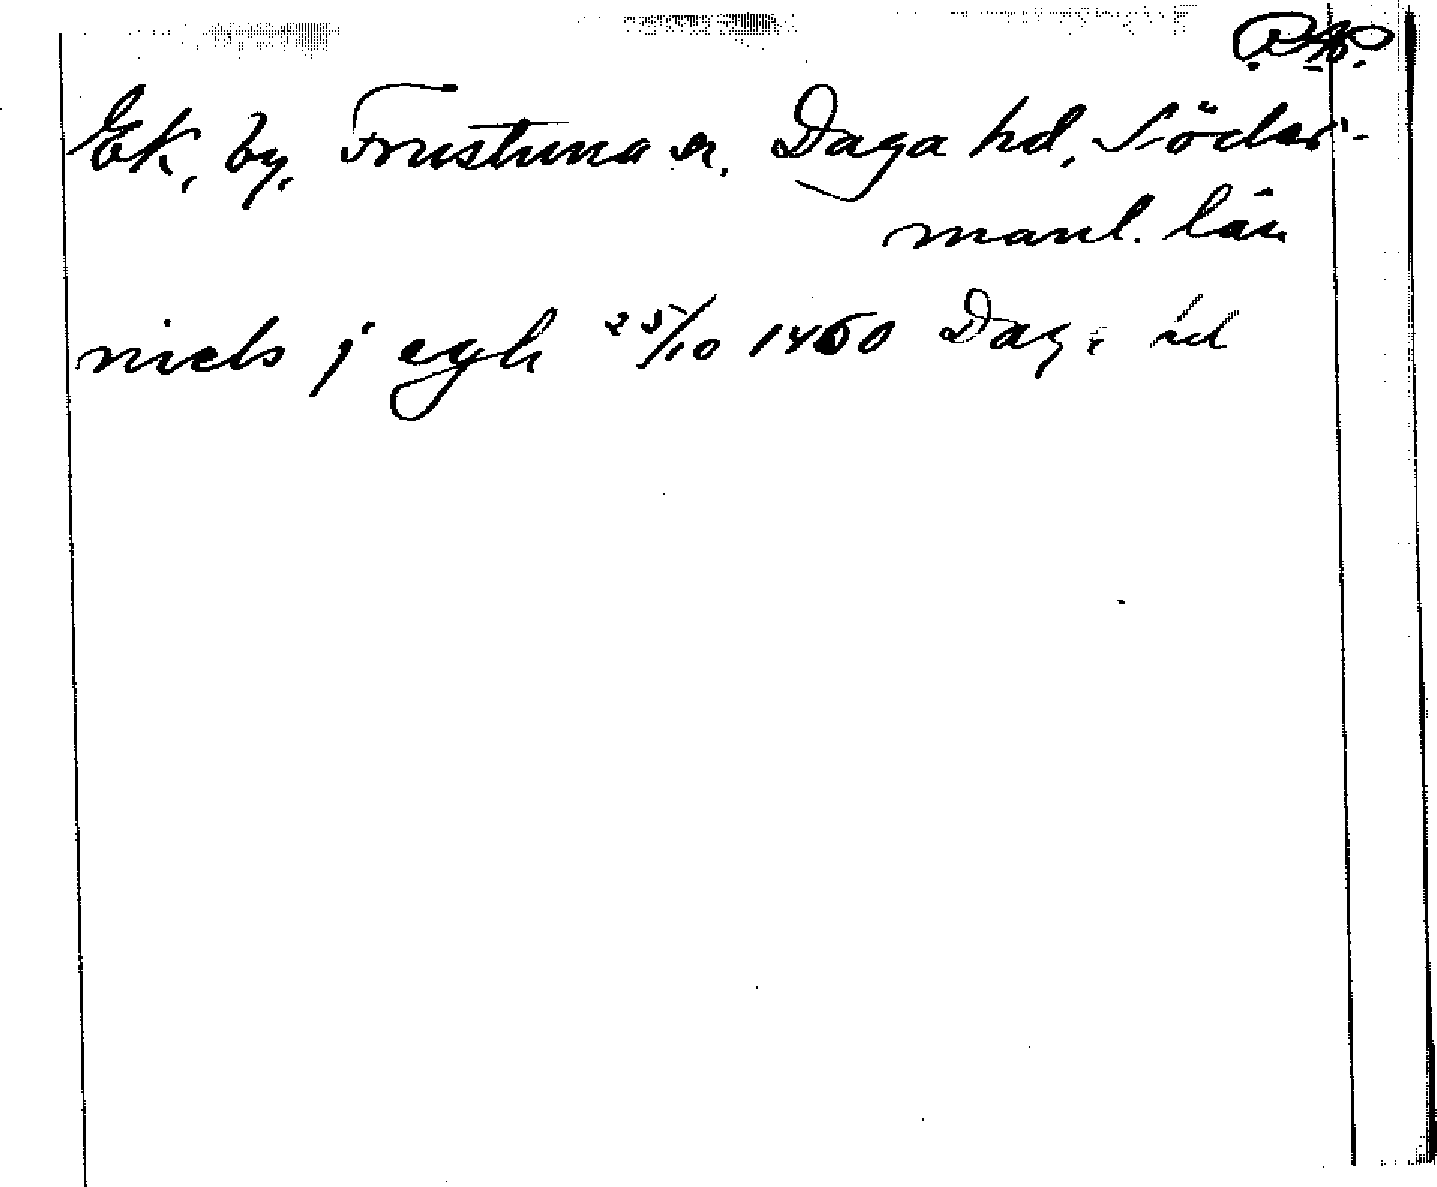 Ek, by, Frustuna sn, Daga hd, Söder-
manl. län
niels j egh 25/10 1460 Dag: